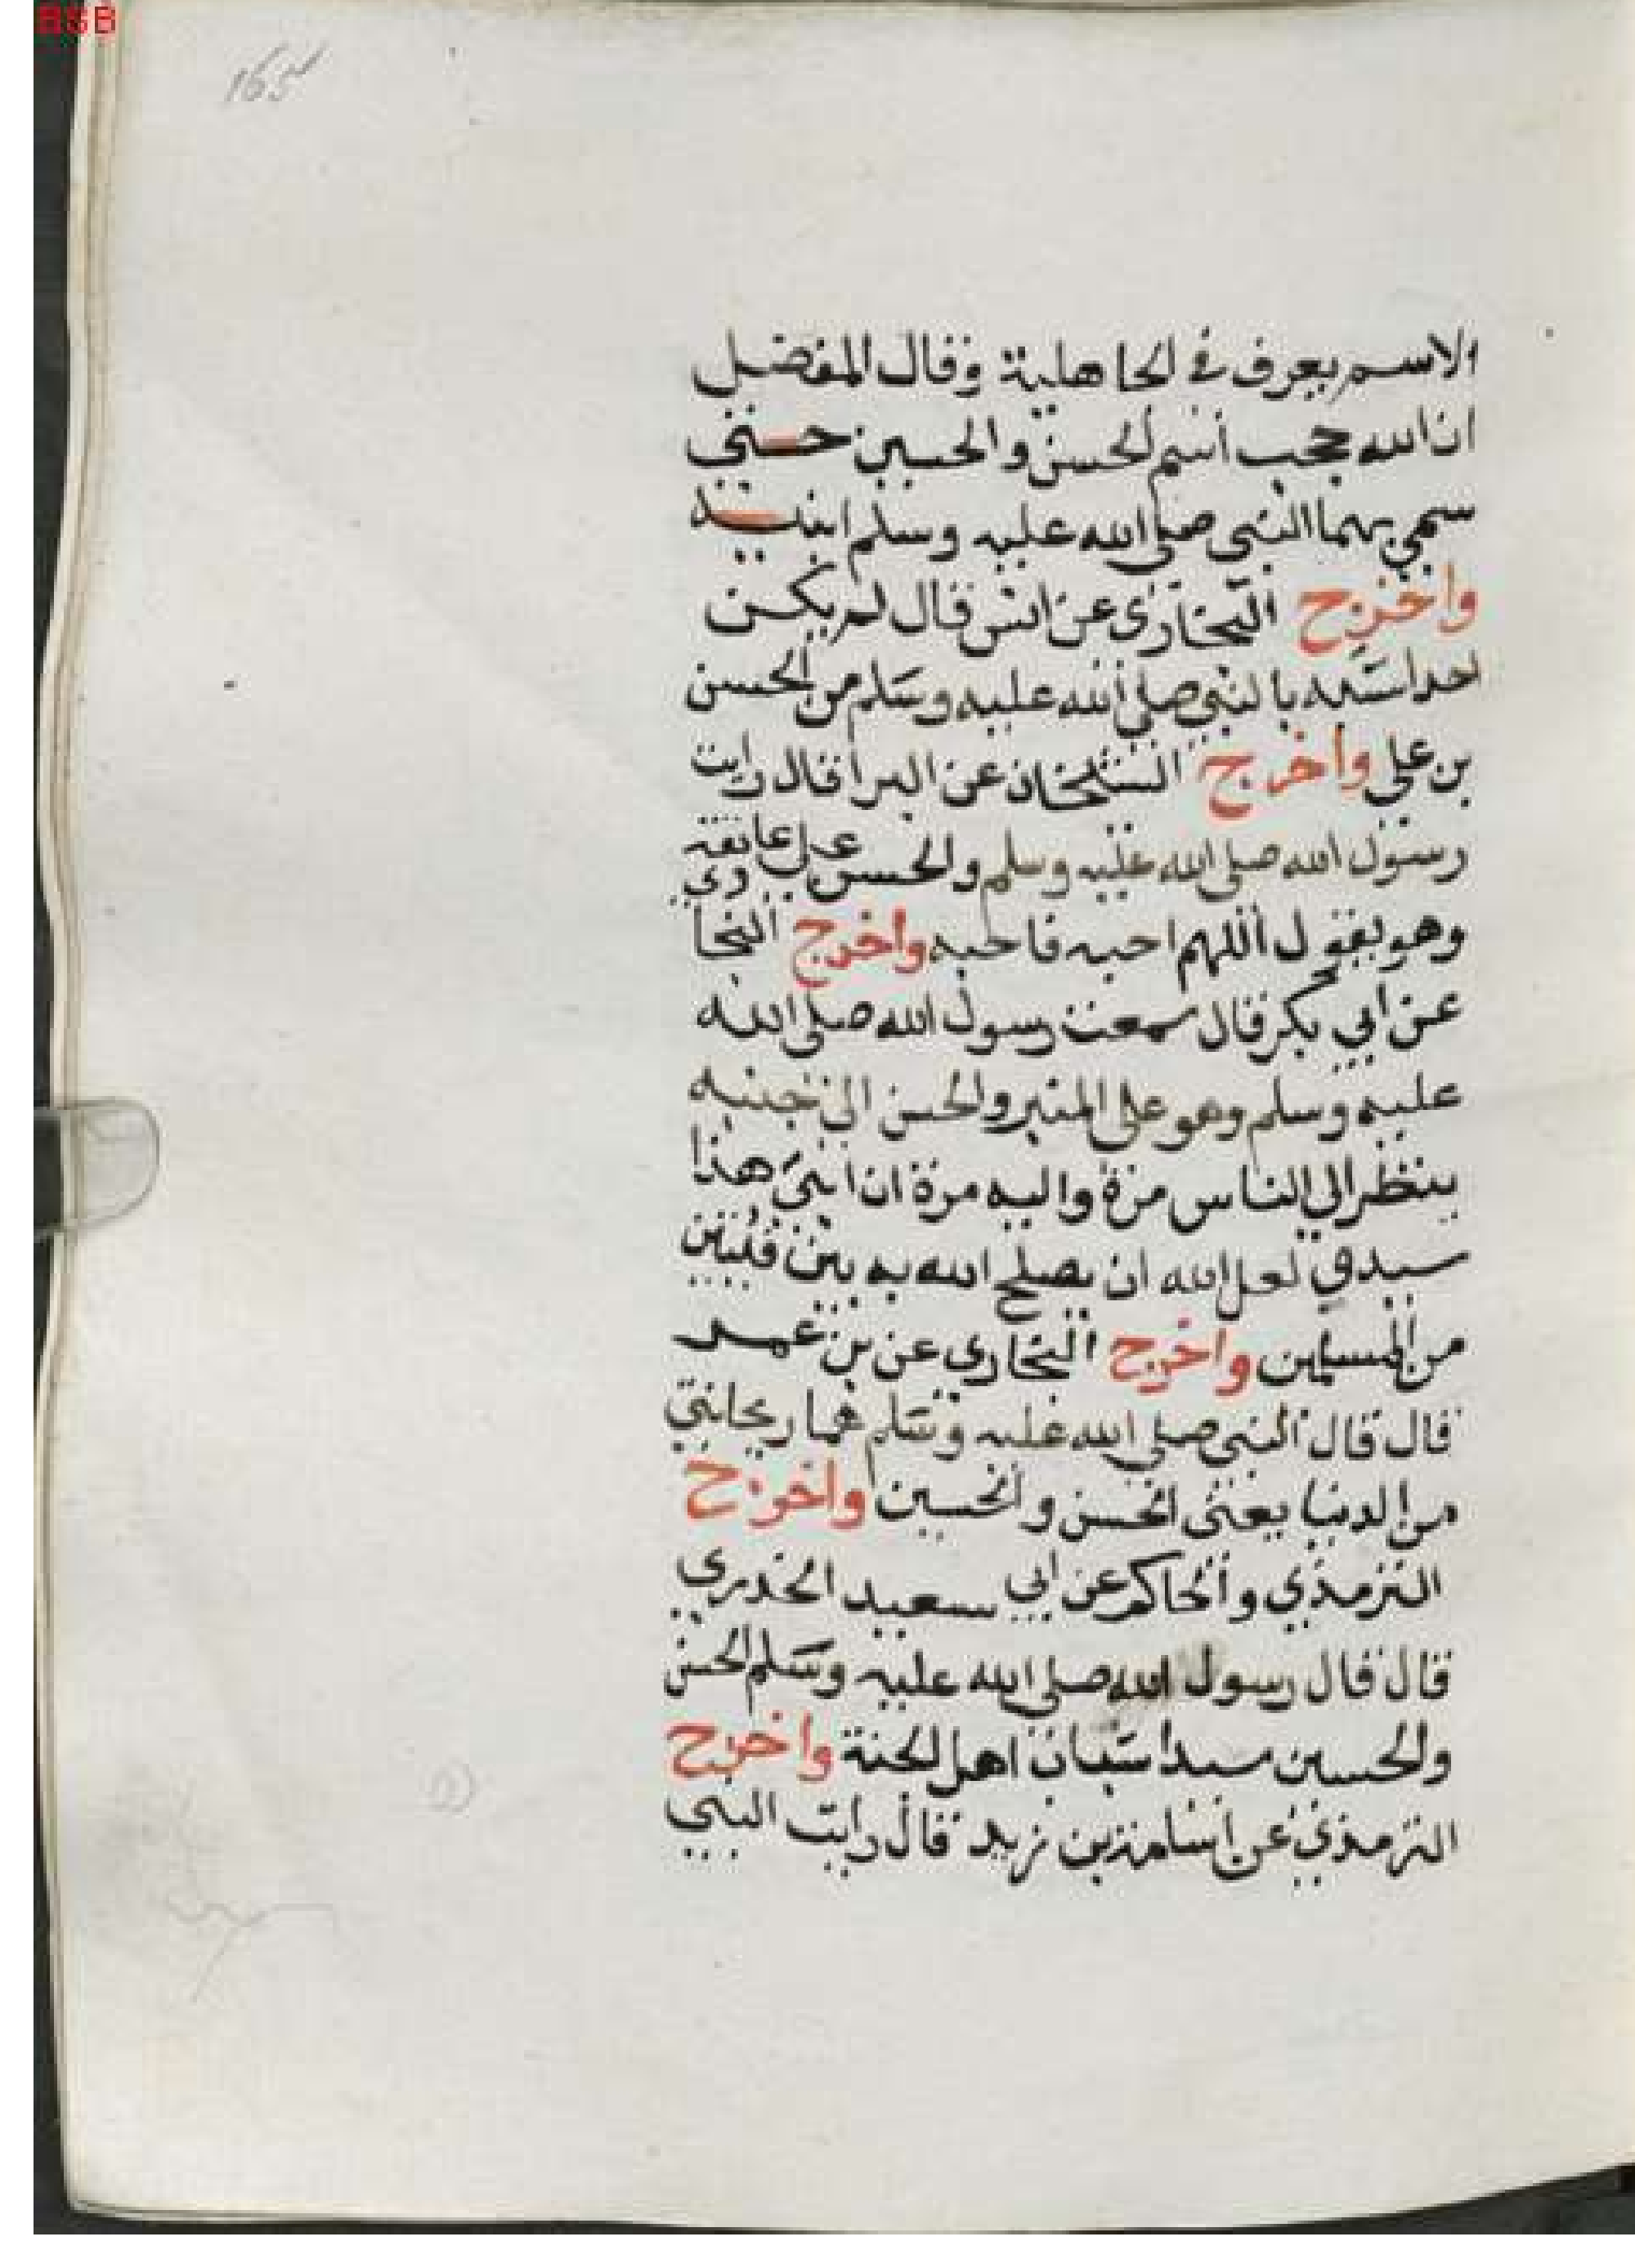 BSB
165
الاسم يعرف في الجاهلية وقال المفضل
ان الله حجب اسم الحسن والحسين حتي
سمي بهما النبي صلي الله عليه وسلم ابنيه
واخرج البخاري عن انس قال لم يكن
احد اشبه بالنبي صلي الله عليه وسلم من الحسن
بن علي واخرج الشيخان عن البرا قال رايت
رسول الله صلي الله عليه وسلم والحسن علي عاتقه
وهو يقول اللهم احبه فاحبه واخرج البخا
ري
عن ابي بكر قال سمعت رسول الله صلي الله
عليه وسلم وهو علي المنبر والحسن الي جنبه
ينظر الي الناس مرة واليه مرة ان ابني هذا
سيدي لعل الله ان يصلح الله به بين فئتين
من المسلمين واخرج البخاري عن بن عمر
قال قال النبي صلي الله عليه وسلم هما ريحانتي
من الدنيا يعني الحسن والحسين واخرج
الترمذي والحاكم عن ابي سعيد الخدري
قال قال رسول الله صلي الله عليه وسلم الحسن
والحسين سيدا شبان اهل الجنة واخرج
الترمذي عن اسامة بن زيد قال رايت النبي